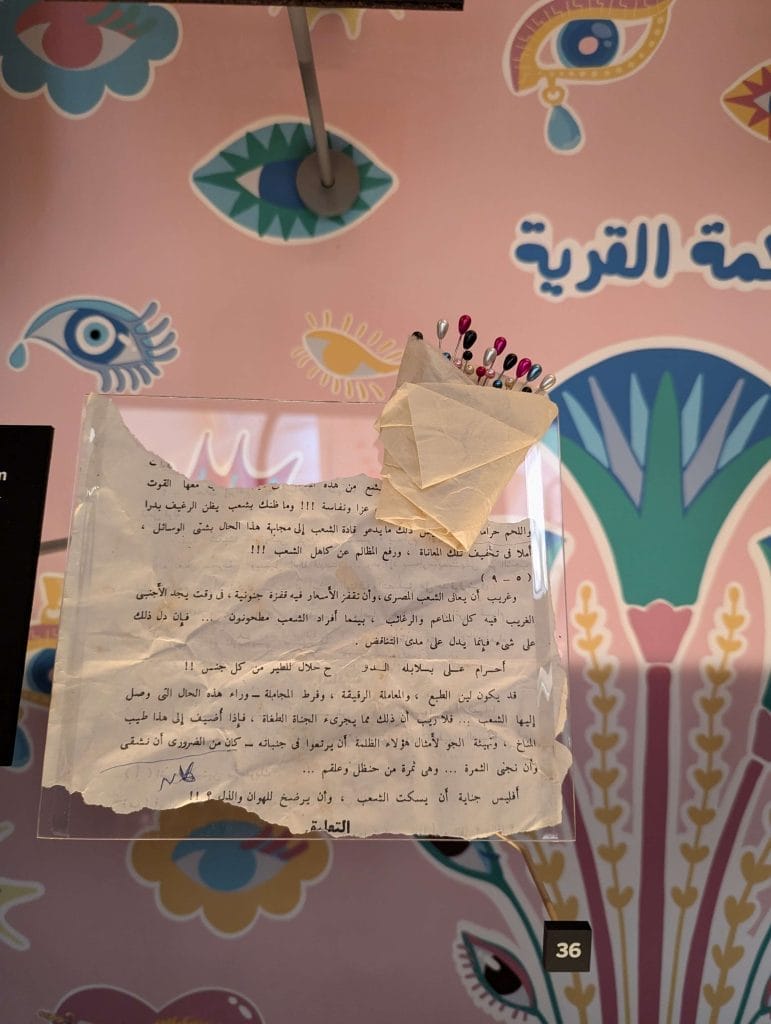 مة القرية
شبع من هذه
معها القوت
عزا ونفاسة !!! وما ظنك بشعب يظن الرغيف بدرا
واللحم حراما ذلك ما يدعو قادة الشعب إلى مجابهة هذا الحال بشتى الوسائل ،
أملا فى تخفيف تلك المعاناة ، ورفع المظالم عن كاهل الشعب !!!
( ٥ – ٩ )
وغريب أن يعانى الشعب المصرى ، وأن تقفز الأسعار فيه قفزة جنونية ، فى وقت يجد الأجنبى
الغريب فيه كل المناعم والرغائب ، بينما أفراد الشعب مطحونون ... فإن دل ذلك
على شىء فإنما يدل على مدى التناقض .
أحرام على بلابله الدو ح حلال للطير من كل جنس !!
قد يكون لين الطبع ، والمعاملة الرقيقة ، وفرط المجاملة – وراء هذه الحال التى وصل
إليها الشعب ... فلا ريب أن ذلك مما يجرىء الجناة الطغاة ، فإذا أضيف إلى هذا طيب
المناخ ، وتهيئة الجو لأمثال هؤلاء الظلمة أن يرتعوا فى جنباته – كان من الضرورى أن نشقى
وأن نجنى الثمرة ... وهى ثمرة من حنظل وعلقم ...
أفليس جناية أن يسكت الشعب ، وأن يرضخ للهوان والذل ؟ !!
التعليق
36